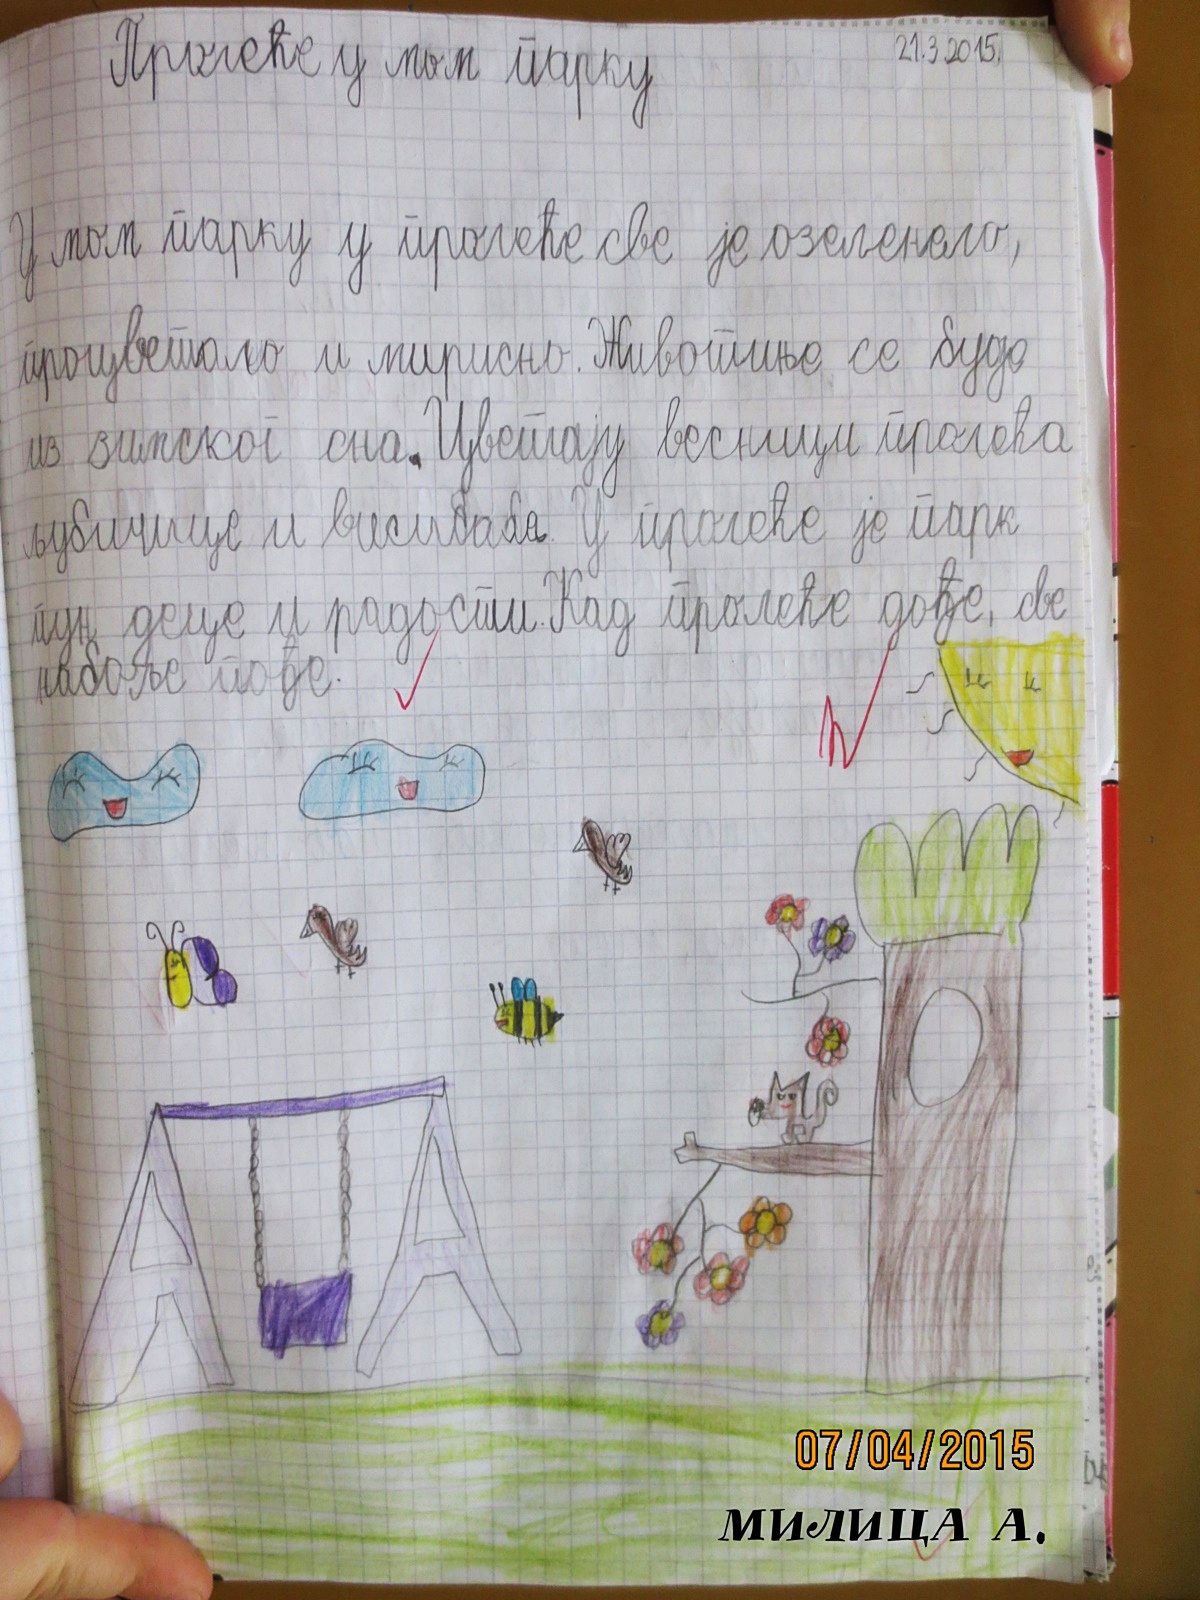 Пролеће у мом парку
21.3.2015.
У мом парку у пролеће све је озеленело,
процветало и мирисно. Животиње се буде
из зимског сна. Цветају весници пролећа
љубичице и висибаба. У пролеће је парк
пун деце и радости. Кад пролеће дође, све
набоље пође.
07/04/2015
МИЛИЦА А.